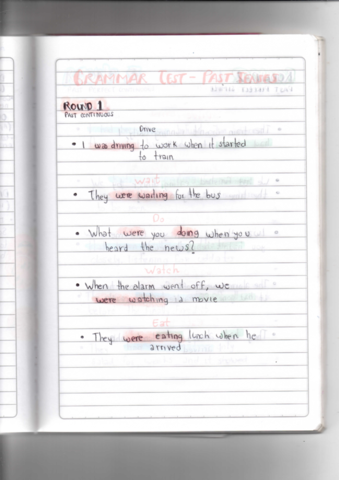 GRAMMAR TEST - PAST TENSES
ROUND 1
PAST CONTINUOUS
Drive
• I was driving to work when it started
to train
Wait
• They were waiting for the bus
Do
• What were you doing when you
heard the news?
Watch
• When the alarm went off, we
were watching a movie
Eat
• They were eating lunch when he
arrived